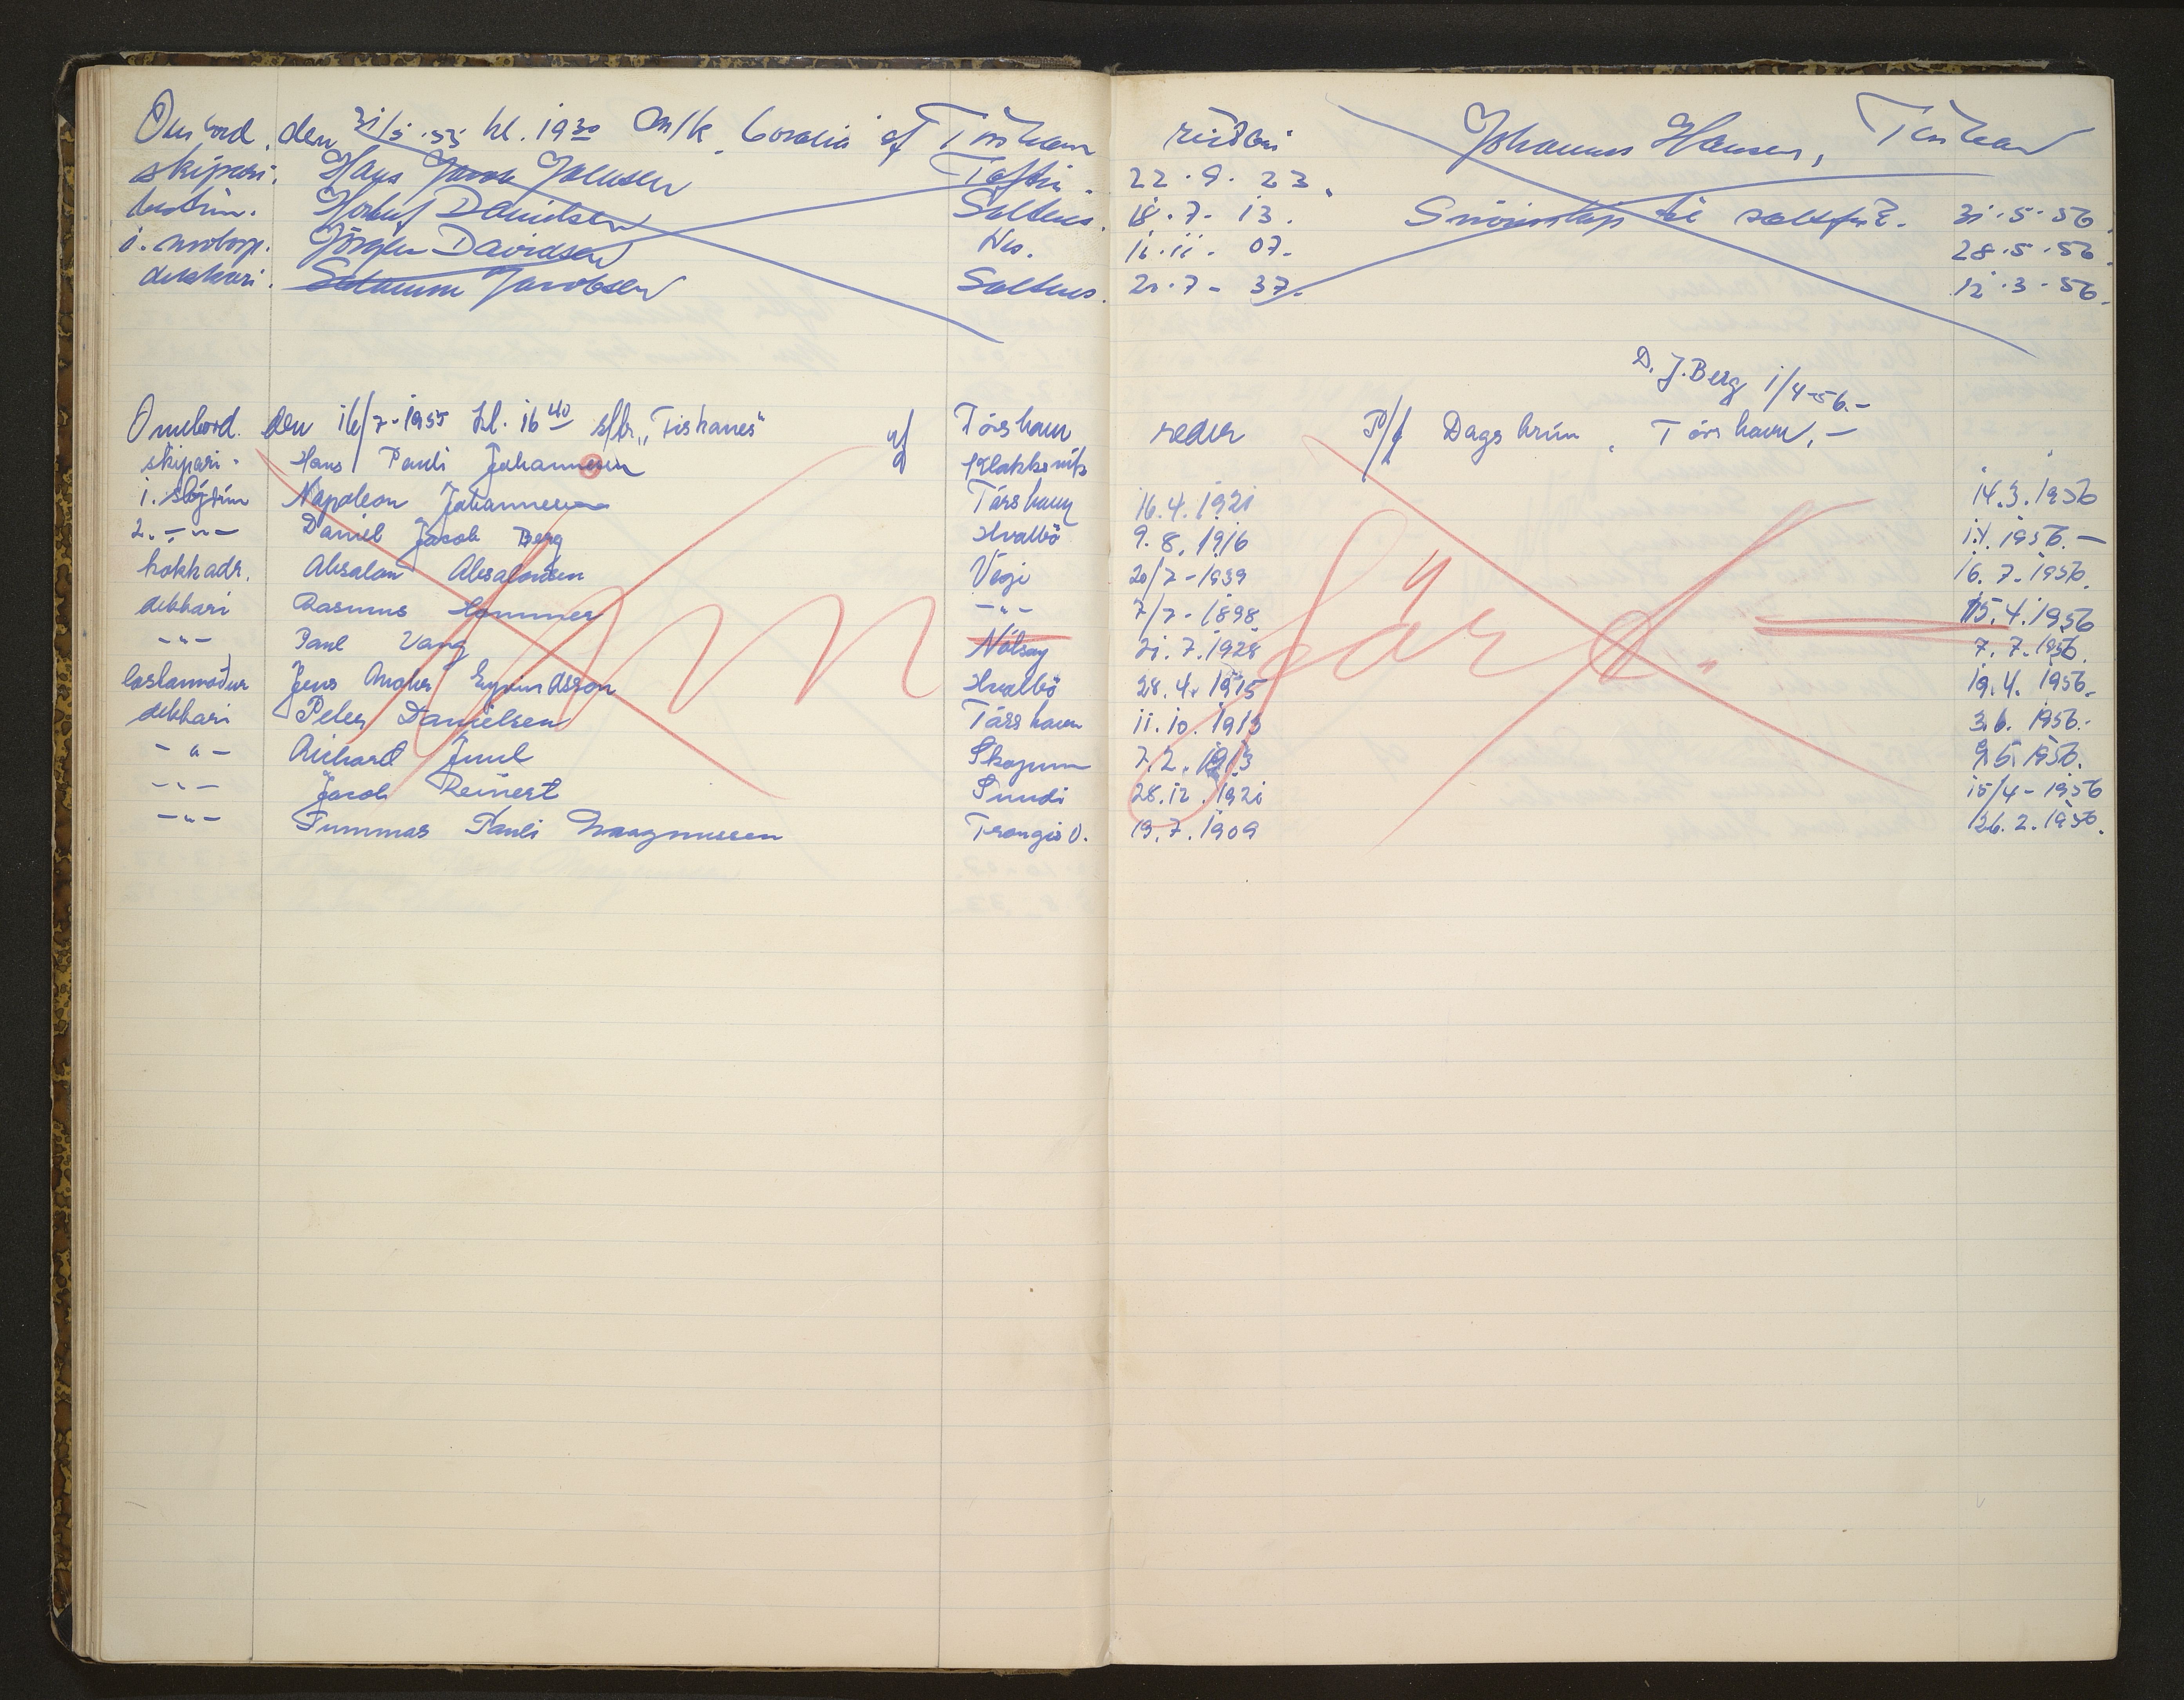 Ombord den 31/5.55 kl. 19 30 M/k Coralia af Tórshavn reiðari Johannus Hansen, Tórshavn
skipari. Hans Jacob Joensen Toftir. 22.9.23.
bestm. Danielsen Saltnes. 18.7-13. til saltfisk. 31.5.56
1. motorp. Jörgen Davidsen Nes. 11.11.07. 28.5.56.
dekkari. Jacobsen Saltnes. 21.7-37. 12.3-56.
D. J. Berg 1/4-56.-
Ombord. den 16/7-1955 kl. 16 40 s/br. „Fiskanes" af Tórshavn reder P/f Dagsbrún, Tórshavn.-
skipari. Hans Pauli Johannesen Klakksvík
1. stýrim Napoleon Johannesen Tórshavn 16.4.1921 14.3.1956
2. -"- Daniel Jacob Berg Hvalbö 9.8.1916 1.4.1956.-
kokkadr. Absalon Absalonsen Vági 20/7-1939 16.7.1956.
dekkari Rasmus Hammer -"- 7/7-1898 15.4.1956
-"- Paul Vang Nólsoy 21.7.1928 7.7.1956.
lastarmaður Jens Andr. Eyvindsson Hvalbö 28.4.1915 19.4.1956.
dekkari Peter Danielsen Tórshavn 11.10.1913 3.6.1956.
-"- Richard Juul Skopun 7.2.1913 9.5.1956.
-"- Jacob Reinert Sundi 28.12.1921 15/4-1956
-"- Tummas Pauli Magnussen Trongisv. 19.7.1909 26.2.1956.